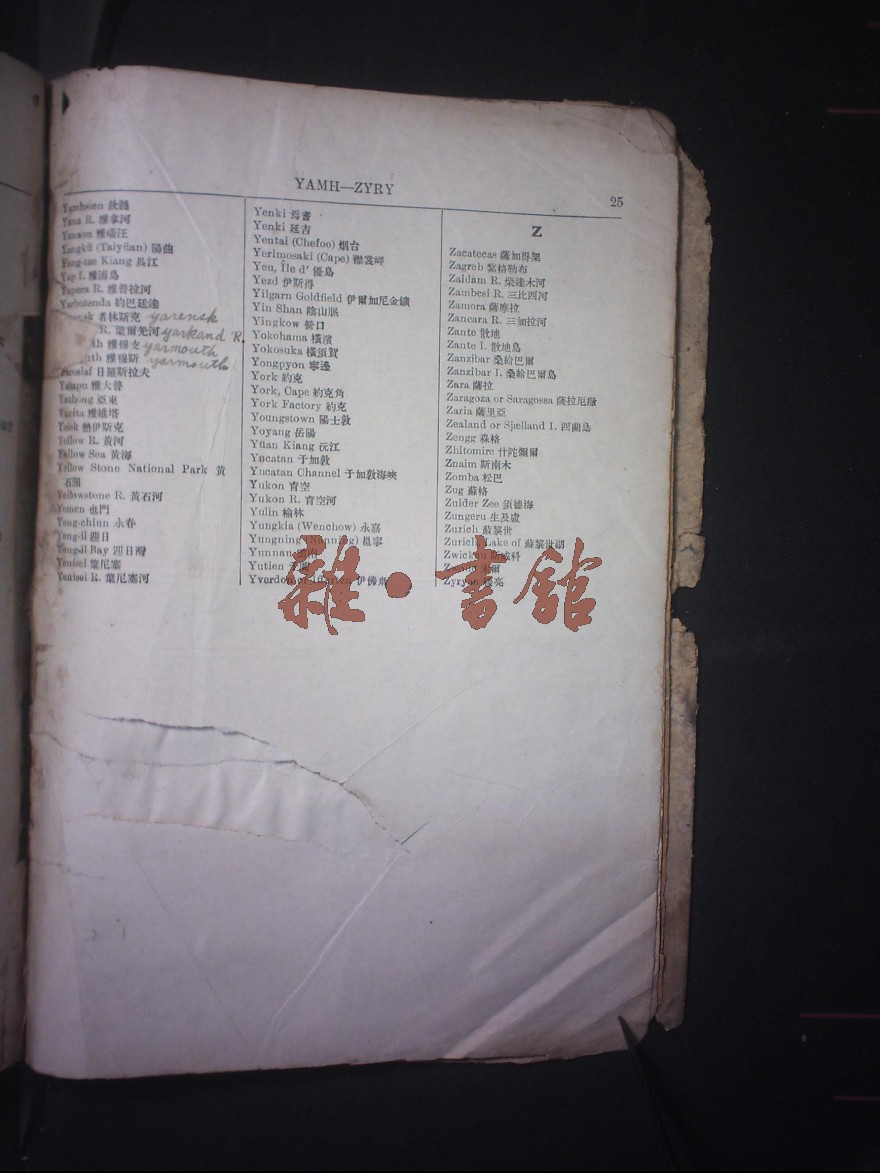 YAMH—ZYRY
25
Yamhsien 歛縣
Yana R. 雅拿河
Yanaon 雅曛汪
Yangkü (Taiyüan) 陽曲
Yang-tze Kiang 長江
Yap I. 雅浦島
Yapura R. 雅普拉河
Yarbutenda 約巴廷達
者林斯克 yarensk
R. 葉爾羌河 yarkand R.
雅穆支 yarmouth
雅穆斯 yarmouth
Yaroslaf 日羅斯拉夫
Yatapo 雅大普
Yathong 亞東
Yavita 雅維塔
Yeisk 熱伊斯克
Yellow R. 黃河
Yellow Sea 黃海
Yellow Stone National Park 黃
石園
Yellowstone R. 黃石河
Yemen 也門
Yeng-chiun 永春
Yeng-il 迎日
Yeng-il Bay 迎日灣
Yenisei 葉尼塞
Yenisei R. 葉尼塞河
Yenki 焉耆
Yenki 延吉
Yentai (Chefoo) 烟台
Yerimosaki (Cape) 襟裳岬
Yeu, Île d' 優島
Yezd 伊斯得
Yilgarn Goldfield 伊爾加尼金鑛
Yin Shan 陰山脈
Yingkow 營口
Yokohama 橫濱
Yokosuka 橫須賀
Yongpyon 寧邊
York 約克
York, Cape 約克角
York Factory 約克
Youngstown 陽士敦
Yoyang 岳陽
Yüan Kiang 沅江
Yucatan 于加敦
Yucatan Channel 于加敦海峽
Yukon 育空
Yukon R. 育空河
Yulin 榆林
Yungkia (Wenchow) 永嘉
Yungning (Nanning) 邕寧
Yunnan
Yutien
Yverdon
Z
Zacatecas 薩加得架
Zagreb 紮格勒布
Zaidam R. 柴達木河
Zambesi R. 三比西河
Zamora 薩摩拉
Zancara R. 三加拉河
Zante 散地
Zante I. 散地島
Zanzibar 桑給巴爾
Zanzibar I. 桑給巴爾島
Zara 薩拉
Zaragoza or Saragossa 薩拉厄撒
Zaria 薩里亞
Zealand or Sjælland I. 西蘭島
Zengg 森格
Zhitomire 什陀爾爾
Znaim 斯南木
Zomba 松巴
Zug 蘇格
Zuider Zee 須德海
Zungeru 生及盧
Zurich 蘇黎世
Zurich, Lake of 蘇黎世湖
Zwickau
Zyryan
雜·書館